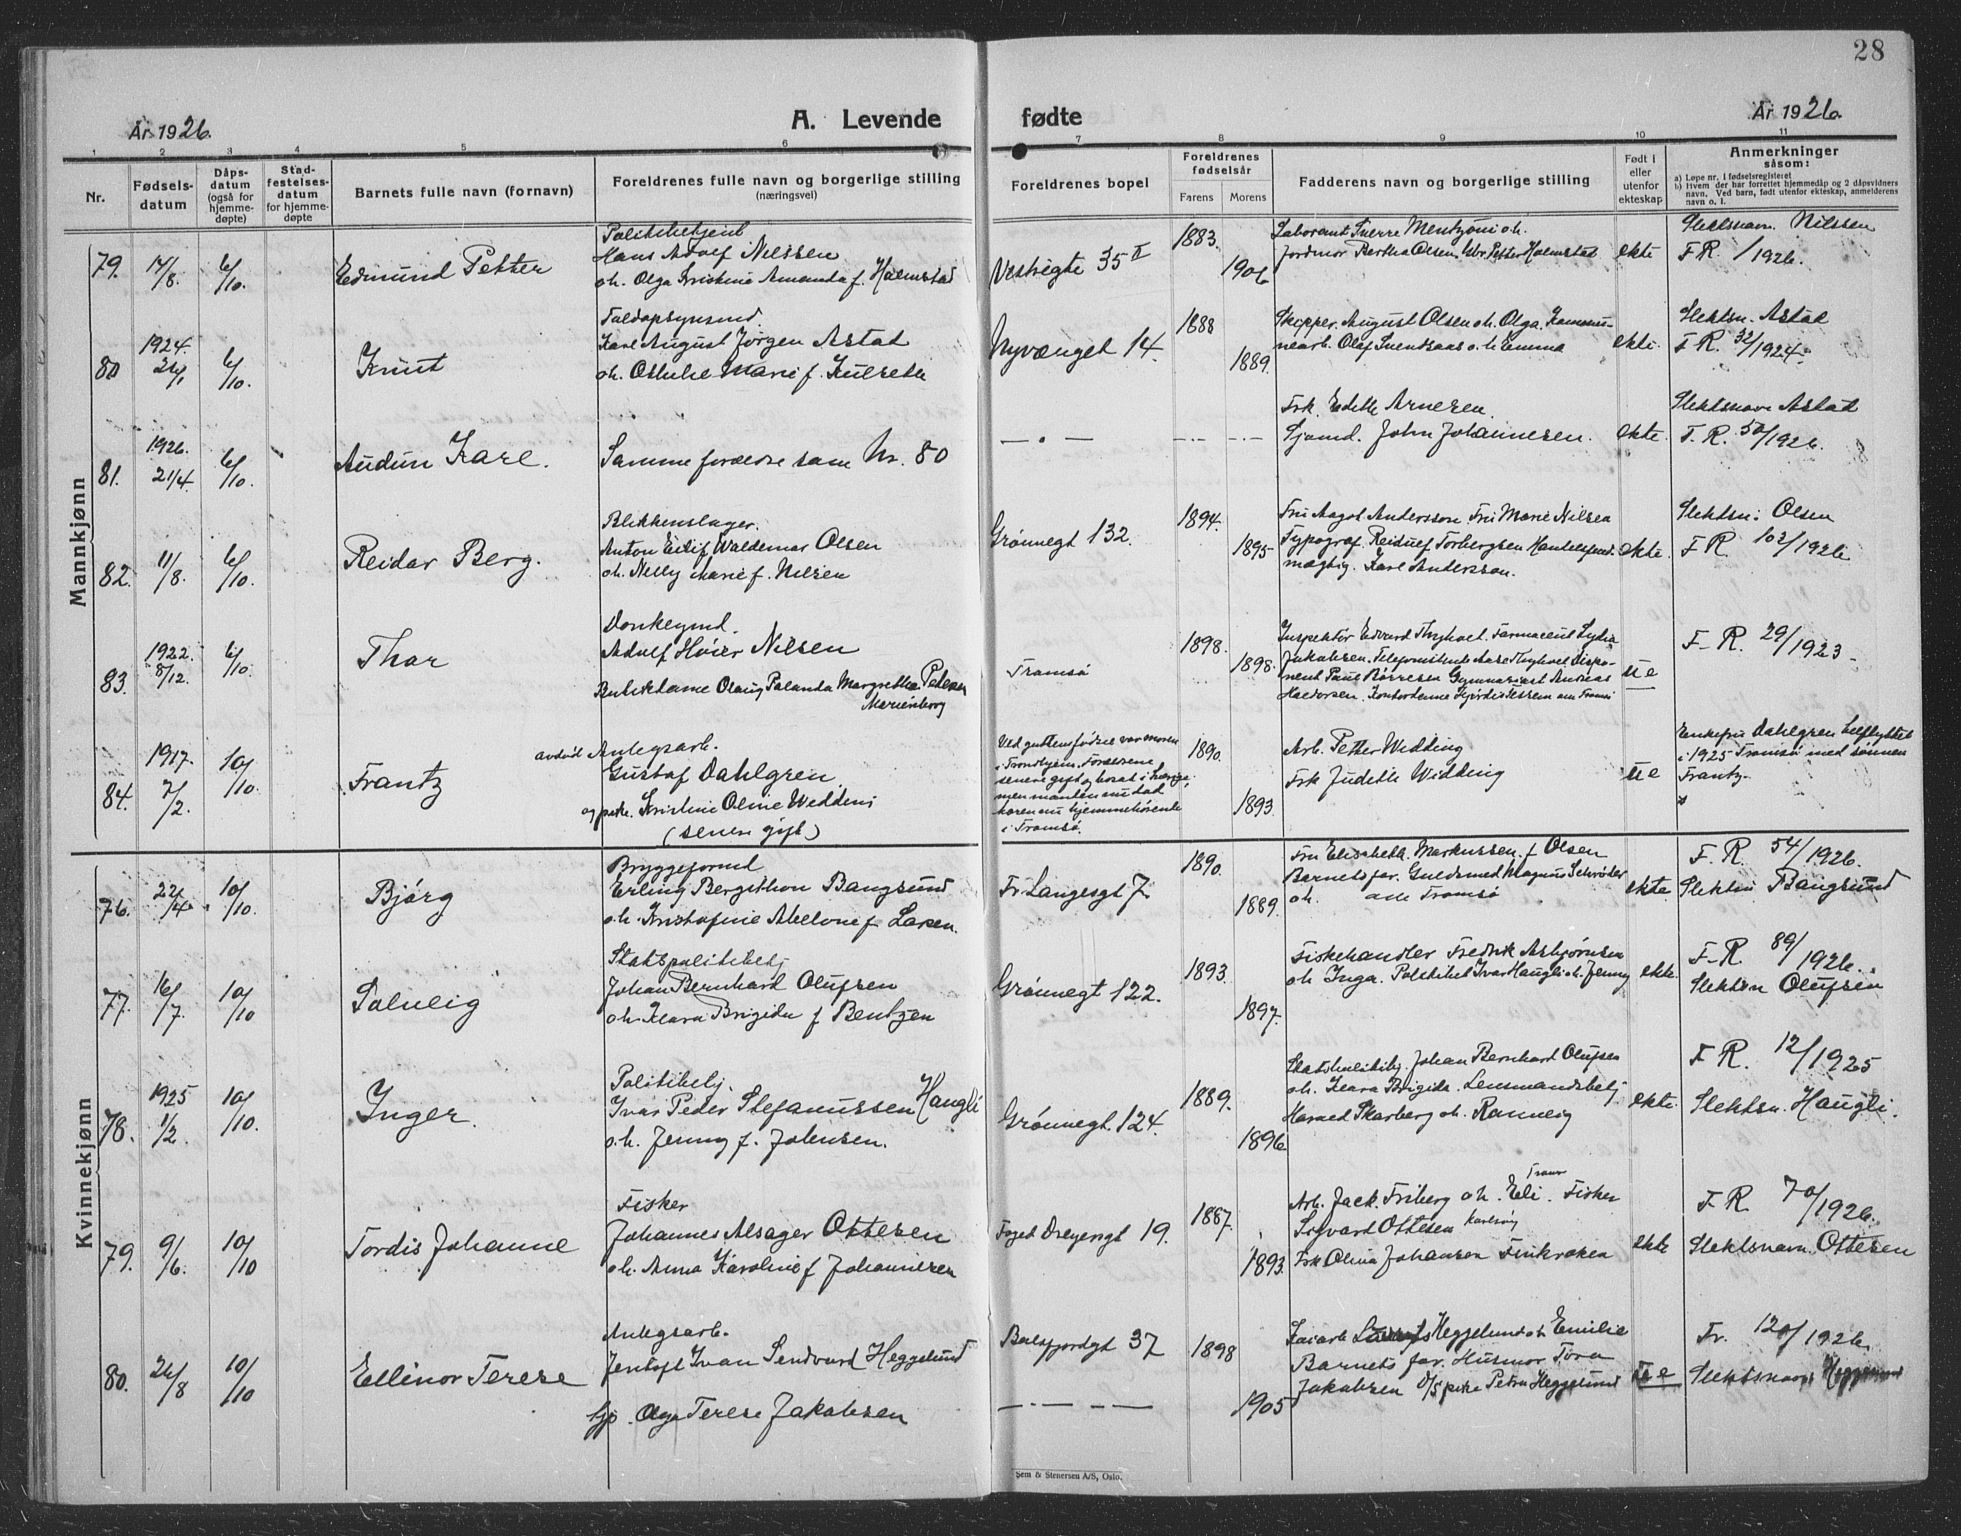 28
År 1926.
A. Levende
fødte
År 1926.
1 2 3 4 5 6 7 8 9 10 11
Nr.
Fødsels-
datum
Dåps-
datum
(også for
hjemme-
døpte)
Stad-
festelses-
datum
for hjemme-
døpte
Barnets fulle navn (fornavn)
Foreldrenes fulle navn og borgerlige stilling
(næringsvei)
Foreldrenes bopel
Foreldrenes
fødselsår
Farens Morens
Fadderens navn og borgerlige stilling
Født i
eller
utenfor
ekteskap
Anmerkninger
såsom:
a) Løpe nr. i fødselsregisteret
b) Hvem der har forrettet hjemmedåp og 2 dåpsvidners
navn. Ved barn, født utenfor ekteskap, anmelderens
navn o. l.
Mannkjønn
79. 17/8. 6/10. Edmund Petter
Politibetjent
Hans Adolf Nilssen
oh. Olga Kristine Amanda f. Halmstad
Vestregte 35 II
1883.
1906
Laborant Sverre Mentzoni oh.
Jordmor Bertha Olsen. Petter Halmstad
ekte
Slektsnavn Nilssen
F R. /1926.
80 1924. 24/1 6/10. Knut
Karl August Jörgen Astad
oh. Ottilie Marie f. Kulseth
Nyvænget 14.
1888
1889.
Skipper. August Olsen oh. Olga. Kommu-
nearb. Olaf Svendsaas o.h Emma
ekte.
Slektsn. Astad
F R. 32/1924.
81. 1926. 21/4. 6/10. Audun Kare.
Samme foreldre som Nr. 80
— . —
Frk. Edith Arnesen.
Sjømd. John Johannesen.
ekte.
Slektsnavn Astad
F. R. 50/1926.
82. 11/8. 6/10. Reidar Berg.
Blikkenslager.
Anton Eilif Waldemar Olsen
oh. Nelly Marie f. Nilsen
Grønnegt 132.
1894.
1895
Fru Aagot Andersson. Fru Marie Nilsen
Typograf. Reidulf Torbergsen
mægtig. Karl Andersson.
ekte.
Slektsn: Olsen
F R. 102/1926
83. 1922. 8/12. 6/10. Thor
Donkeymd.
Adolf Höier Nilsen
Butikdame Osaug Palanda Margrethe Petersen
Marienborg
Tromsø
1898.
1898.
Inspektör Edvard Thyholt. Farmaceut Lydia
Jakobsen. Telefonistinde Aase Thyholt Dispo-
nent Paul Börresen Gymnasiast Andreas
Haldorsen. Kontordame Hjördis Tessem
ue
F- R. 29/1923
84. 1917. 7/2. 10/10. Frantz
avdöd Anlegsarb.
Gustaf Dahlgren
og pike. Kristine Oline Weddeng
(senere gift)
Ved guttens födsel var moren
i Trondhjem. Foreldrene
senere gift og bosat i Sverige,
men manden nu död
konen nu hjemmehörende
i Tromsø.
1890.
1893.
Arb. Petter Widding
Frk Judith Widding
ue
Enkefru Dahlgren tilflyttet
i 1925 Tromsø med sönnen
Frantz.
Kvinnekjønn
76. 22/4 10/10. Bjørg
Bryggeformd
Erling Bergithon Bangsund
oh. Kristofine Abelone f. Larsen.
Fr Langesgt 7.
1890.
1889.
Fru Elisabeth. Markussen. f Olsen
Barnets far. Guldsmed Magnus Schröder
oh. alle Tromsø
ekte
F. R. 54/1926.
Slektsn Bangsund
77. 16/7 10/10 Solveig
Statspolitibetj
Johan Bernhard Olufsen
oh. Klara Brigida f Bentzen
Grønnegt 122.
1893.
1897.
Fiskehandler Fredrik Asbjørnsen
oh Inga. Politibet Ivar Haugli oh. Jenny
ekte.
F- R. 89/1926.
Slektsn Olufsen
78. 1925 1/2. 10/10. Inger.
Politibetj.
Ivar Peder Stefanussen Haugli
o.h. Jenny f. Johnsen.
Grønnegt. 124.
1889.
1896
Statspolitibtj. Johan Bernhard Olufsen
oh. Klara Brigida. Lensmandsbetj
Skarberg oh. Ranveig
ekte.
F R. 12/1925
Slektsn. Haugli.
79. 9/6. 10/10 Tordis Johanne
Fisker
Johannes Alsager Ottesen
oh. Anna Karoline f Johannesen
Foged Dreyersgt 19.
1887.
1893.
Arb. Jack. Friberg oh. Eli. Fisker
Sigvard Ottesen Karlsøy
Frk Olina Johansen Finkroken
ekte
F R. 70/1926.
Slektsnavn. Ottesen
80. 24/8 10/10 Ellinor Terese
Anlegsarb.
Jentoft Ivan Sendvard Heggelund
Gp. Olga Terese Jakobsen
Balsfjordgt 37
1898
1905
Heggelund oh Emilie
Barnets far. Husmor Tora
Jakobsen pike Petra Heggelund
ue
Fr. 120/1926.
Slektsnavn Heggelund
Sem & Stenersen A/S, Oslo.